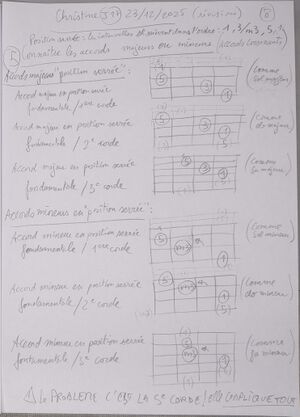 Christine J17 23/12/2025 (révision) 6
Position serrée : les intervalles se suivent dans l'ordre : 1, 3/m3, 5, 1
5 Connaître les accords majeurs ou mineurs (Accords consonants)
Accords majeurs "position serrée" :
Accord majeur en position serrée (Comme
fondamentale / 1ère corde sol majeur)
5 3 1
Accord majeur en position serrée (Comme
fondamentale / 2e corde do majeur)
5 3 1
Accord majeur en position serrée (Comme
fondamentale / 3e corde fa majeur)
5 3 1
Accords mineurs en "position serrée" :
Accord mineur en position serrée (Comme
fondamentale / 1ère corde sol mineur)
5 m3 1
Accord mineur en position serrée (Comme
fondamentale / 2e corde do mineur)
5 m3 1
Accord mineur en position serrée (Comme
fondamentale / 3e corde fa mineur)
5 m3 1
LE PROBLEME C'EST LA 5e CORDE / elle COMPLIQUE TOUT